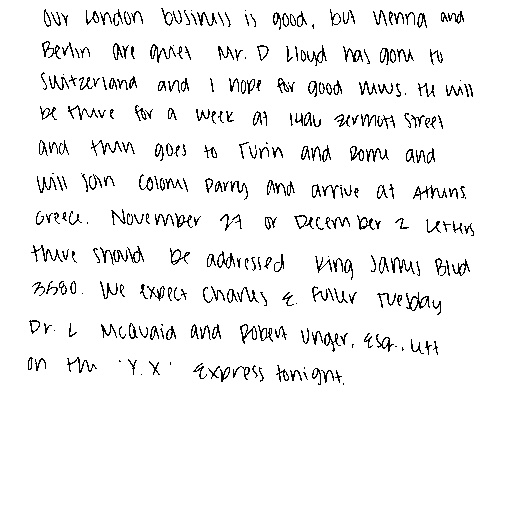 Our London business is good, but Vienna and
Berlin are quiet. Mr. D Lloyd has gone to
Switzerland and I hope for good news. He will
be there for a week at 1496 Zermott Street
and then goes to Turin and Rome and
will join Colonel Parry and arrive at Athens.
Greece. November 27 or December 2 Letters
there should be addressed King James Blvd
3580. We expect Charles E. Fuller Tuesday
Dr. L McQuaid and Robert Unger, Esq., left
on the 'Y.X' Express tonight.